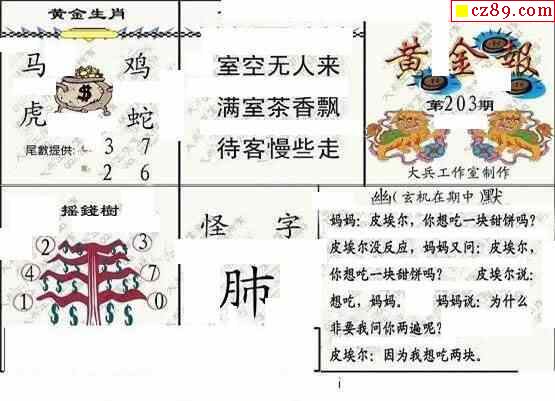 cz89.com
黄金生肖
马 鸡
虎 蛇
尾數提供: 3 7
2 6
室空无人来
满室茶香飘
待客慢些走
黄金报
第203期
大兵工作室制作
摇錢樹
2 3
4 7
1 0
怪 字
肺
幽(玄机在期中)默
妈妈：皮埃尔，你想吃一块甜饼吗？
皮埃尔没反应，妈妈又问：皮埃尔，
你想吃一块甜饼吗？ 皮埃尔说：
想吃，妈妈。 妈妈说：为什么
非要我问你两遍呢？
皮埃尔：因为我想吃两块。